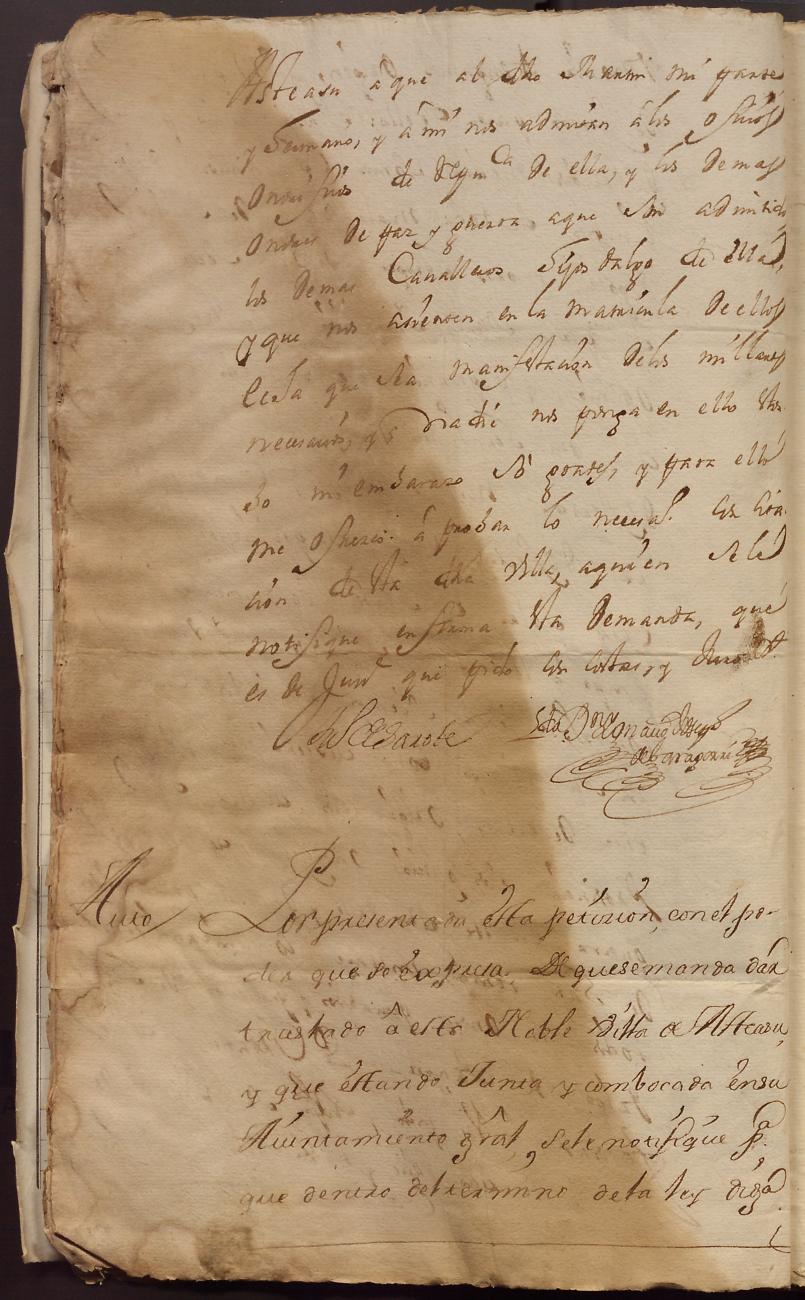 Asteasu a que al dho Martin mi parte
y hermano, y â mi nos admitan â los ofiçios
Onorificos de Repu.ca de ella, y los Demas
Onores De paz y guerra aque son admitidos
los Demas Cavalleros hijos dalgo de ella,
y que nos asienten en la Matricula De ellos
echa que sea manifestaçion Delos millares
necesarios, y q nadie nos ponga en ello estor-
bo ni embarazo so graves, y para ello
me ofrezco â probar lo necesar.o con cita-
cion de esta dha Villa, aquien se le
notifique en forma esta Demanda, que
es de Just.a que pido con costas, y Juro &.a
Auto Por presentada esta petizion, con el po-
der que se expresa De que se manda dar
traslado â esta Noble Villa de Asteasu,
y que êstando Junta y combocada ên su
Aiuntamiento gral, se le notifique p.a
que dentro del termino de la ley diga